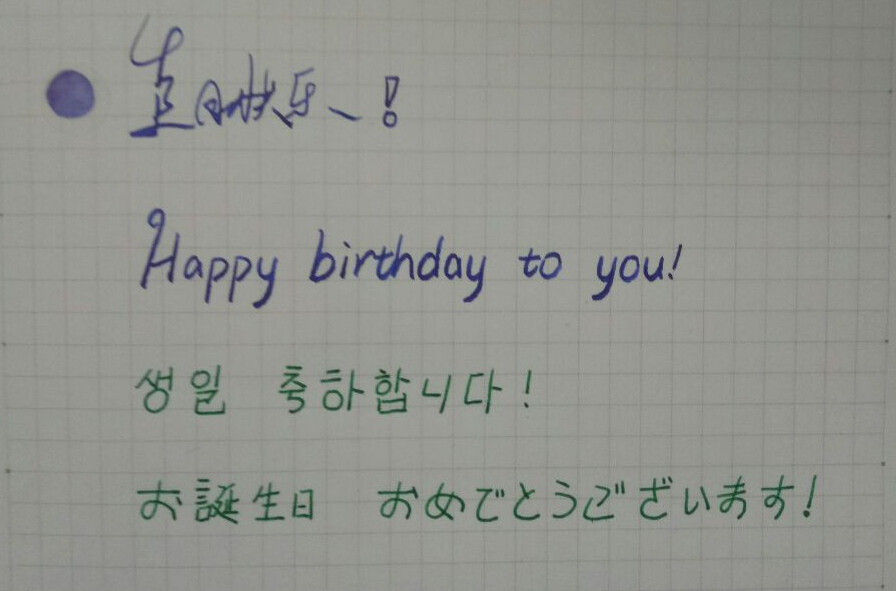 生日快乐!
Happy birthday to you!
생일 축하합니다!
お誕生日 おめでとうございます!